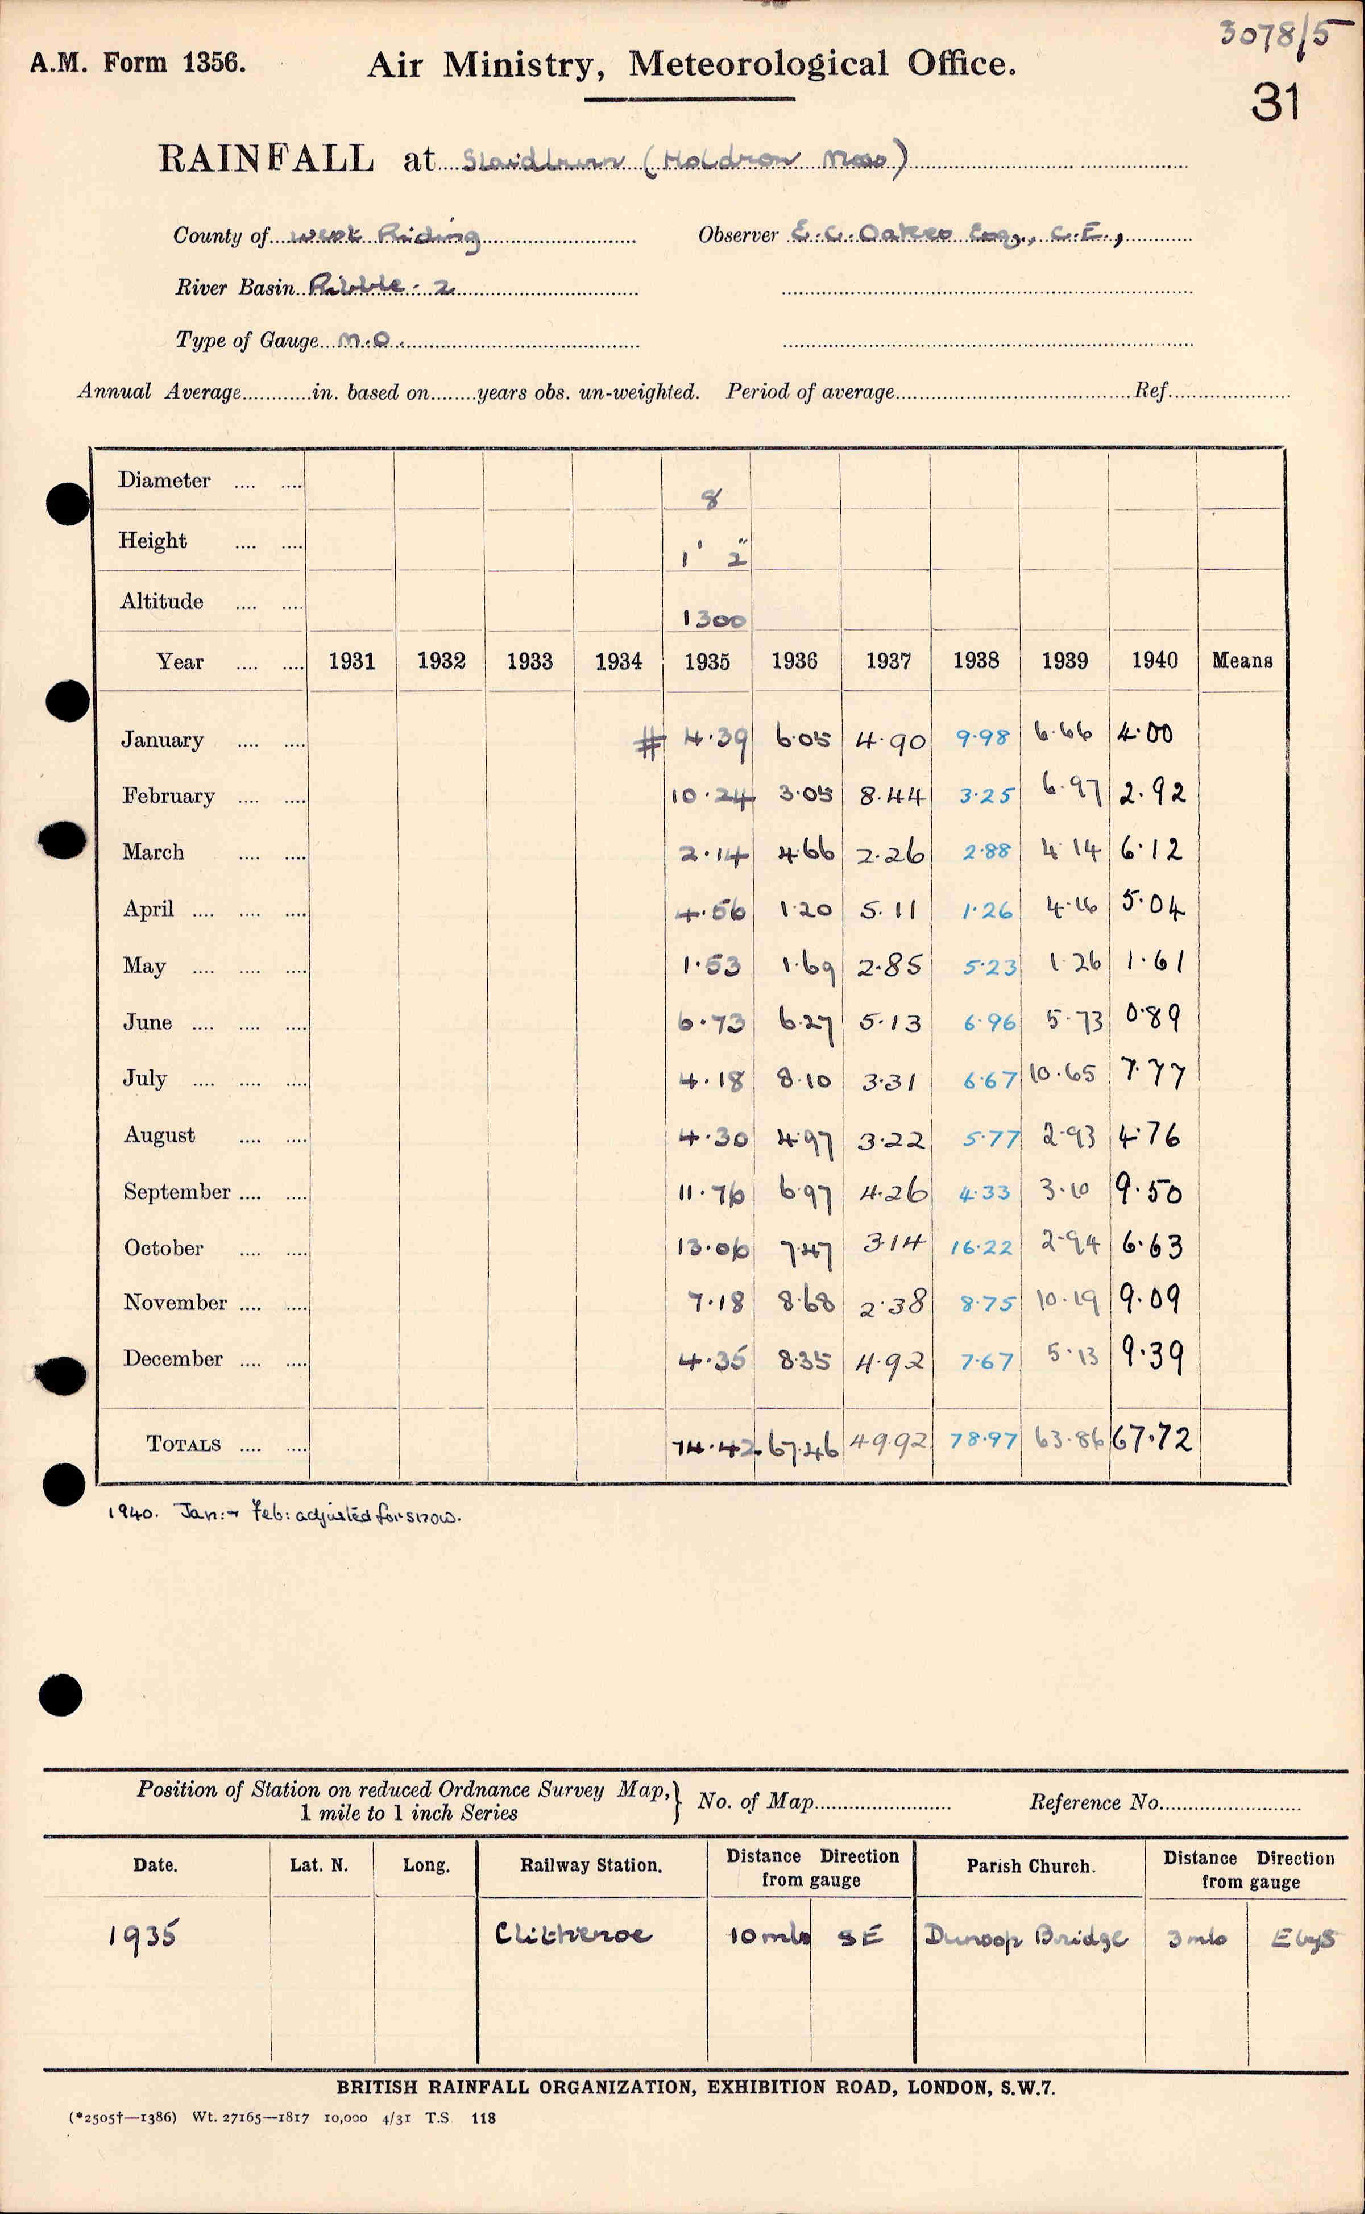 3078/5
A.M. Form 1356. Air Ministry, Meteorological Office.
31
RAINFALL at Slaidburn (Holdron Moss)
County of West Riding Observer E.C. Oakes Esq., C.E.,
River Basin Ribble. 2
Type of Gauge M.O.
Annual Average............in. based on........years obs. un-weighted. Period of average.......... Ref..........
Diameter .... .... 8
Height .... .... 1' 2"
Altitude .... .... 1300
Year .... .... 1931 1932 1933 1934 1935 1936 1937 1938 1939 1940 Means
January .... .... # 4.39 6.05 4.90 9.98 6.66 4.00
February .... .... 10.24 3.05 8.44 3.25 6.97 2.92
March .... .... 2.14 4.66 2.26 2.88 4.14 6.12
April .... .... .... 4.56 1.20 5.11 1.26 4.16 5.04
May .... .... .... 1.53 1.69 2.85 5.23 1.26 1.61
June .... .... .... 6.73 6.27 5.13 6.96 5.73 0.89
July .... .... .... 4.18 8.10 3.31 6.67 10.65 7.77
August .... .... 4.30 4.97 3.22 5.77 2.93 4.76
September .... .... 11.76 6.97 4.26 4.33 3.10 9.50
October .... .... 13.06 7.47 3.14 16.22 2.94 6.63
November .... .... 7.18 8.68 2.38 8.75 10.19 9.09
December .... .... 4.35 8.35 4.92 7.67 5.13 9.39
TOTALS .... .... 74.42 67.46 49.92 78.97 63.86 67.72
1940. Jan: → Feb: adjusted for snow.
Position of Station on reduced Ordnance Survey Map, } No. of Map.......... Reference No..........
1 mile to 1 inch Series
Date. Lat. N. Long. Railway Station. Distance Direction from gauge Parish Church. Distance Direction from gauge
1935 Clitheroe 10 mls SE Dunsop Bridge 3 mls E by S
BRITISH RAINFALL ORGANIZATION, EXHIBITION ROAD, LONDON, S.W.7.
(*2505†—1386) Wt. 27165—1817 10,000 4/31 T.S 118